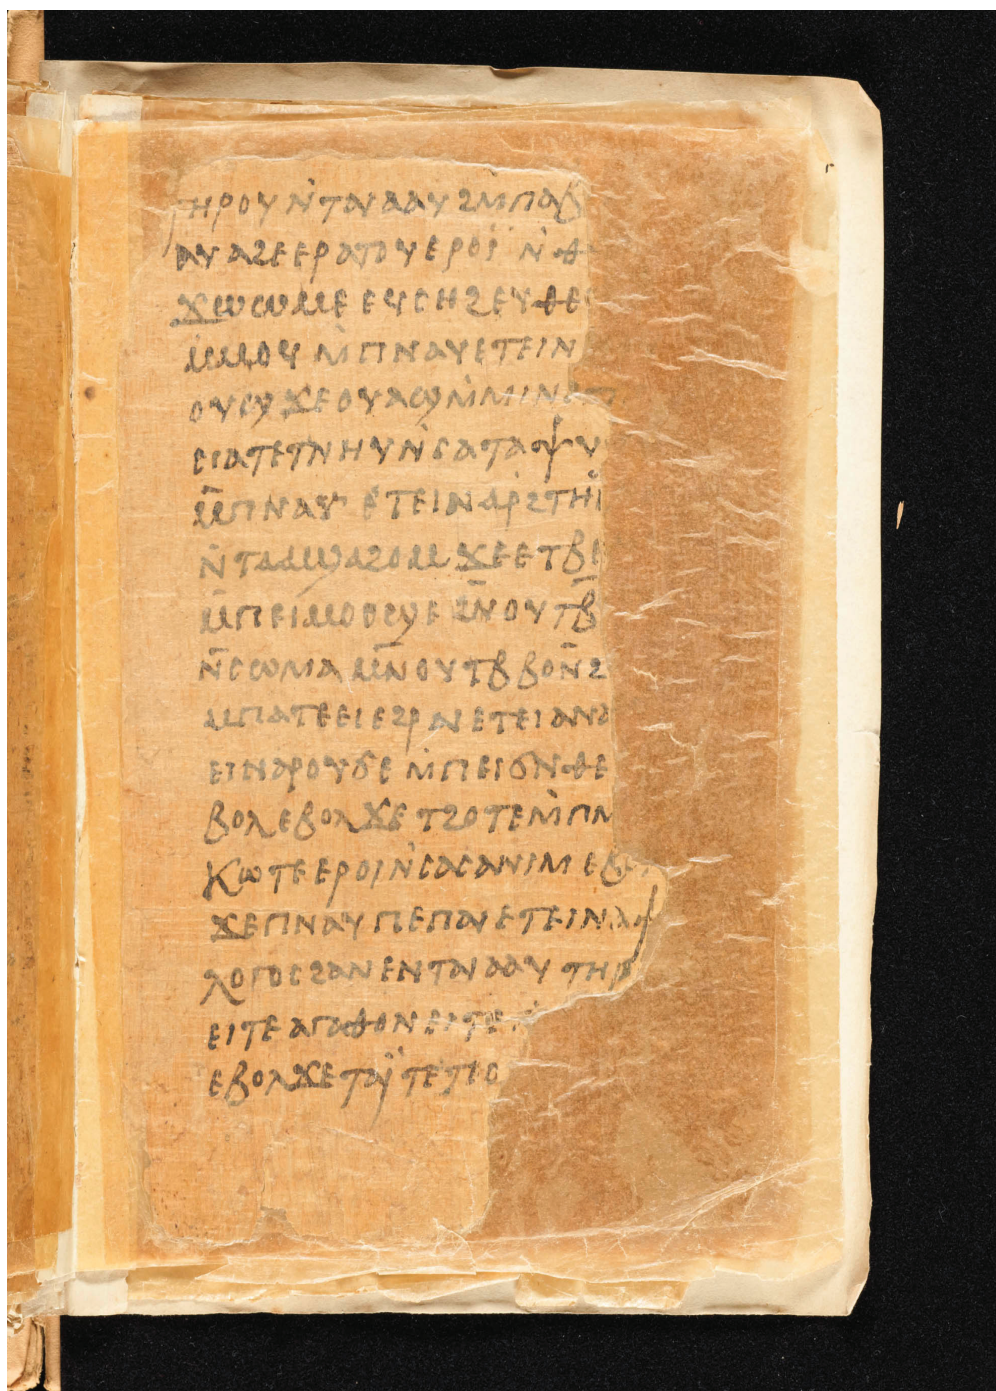 ⲧⲏⲣⲟⲩ ⲛ̇ⲧⲁⲓⲁⲁⲩ ϩⲙ̇ⲡⲁⲃ
ⲁⲩⲁϩⲉⲉⲣⲁⲧⲟⲩ ⲉⲣⲟⲓ̈ ⲛ̇ⲑ
ϫⲱⲱⲙⲉ ⲉⲩⲥⲏϩ ⲉⲩⲑⲉ
ⲙ̇ⲙⲟⲩ ⲙ̇ⲡⲛⲁⲩ ⲉⲧⲉⲓⲛ
ⲟⲩⲱ ϫⲉ ⲟⲩⲁϣ ⲙ̇ⲙⲓⲛⲉ ⲡ
ⲉⲓⲁⲧⲉⲧⲛⲏⲩ ⲛ̇ⲥⲁⲧⲁⲯⲩ
ⲙ̄ⲡⲛⲁⲩ ⲉⲧⲉⲓⲛⲁⲣ̇ϩⲧⲏⲓ̈
ⲛ̇ⲧⲁⲁϣⲁϩⲟⲙ ϫⲉⲉⲧⲃⲉ
ⲙ̄ⲡⲉⲓⲙⲟⲟϣⲉ ϩ̄ⲛⲟⲩⲧⲃ̄
ⲛ̄ⲥⲱⲙⲁ ⲙ̄ⲛⲟⲩⲧⲃⲃⲟ ⲛ̄ϩ
ⲙⲡⲁⲧⲉⲉⲓ ⲉϩⲣⲁⲓ ⲉⲧⲉⲓⲁⲛⲁ
ⲉⲓⲛⲁⲣⲟⲩ ϭⲉ ⲙ̇ⲡⲉⲓϭⲛⲑⲉ
ⲃⲟⲗ ⲉⲃⲟⲗϫⲉ ⲧϩⲟⲧⲉ ⲙ̇ⲡⲙ
ⲕⲱⲧⲉ ⲉⲣⲟⲓ ⲛ̇ⲥⲁⲥⲁ ⲛⲓⲙ ⲉⲃ
ϫⲉⲡⲛⲁⲩ ⲡⲉ ⲡⲁⲓ ⲉⲧⲉⲓⲛⲁϯ
ⲗⲟⲅⲟⲥ ϩⲁⲛⲉⲛⲧⲁⲓⲁⲁⲩ ⲧⲏⲣ
ⲉⲓⲧⲉ ⲁⲅⲁⲑⲟⲛ ⲉⲓⲧⲉ
ⲉⲃⲟⲗϫⲉ ⲧⲁⲓ̈ ⲧⲉ ⲧⲉⲓⲉ